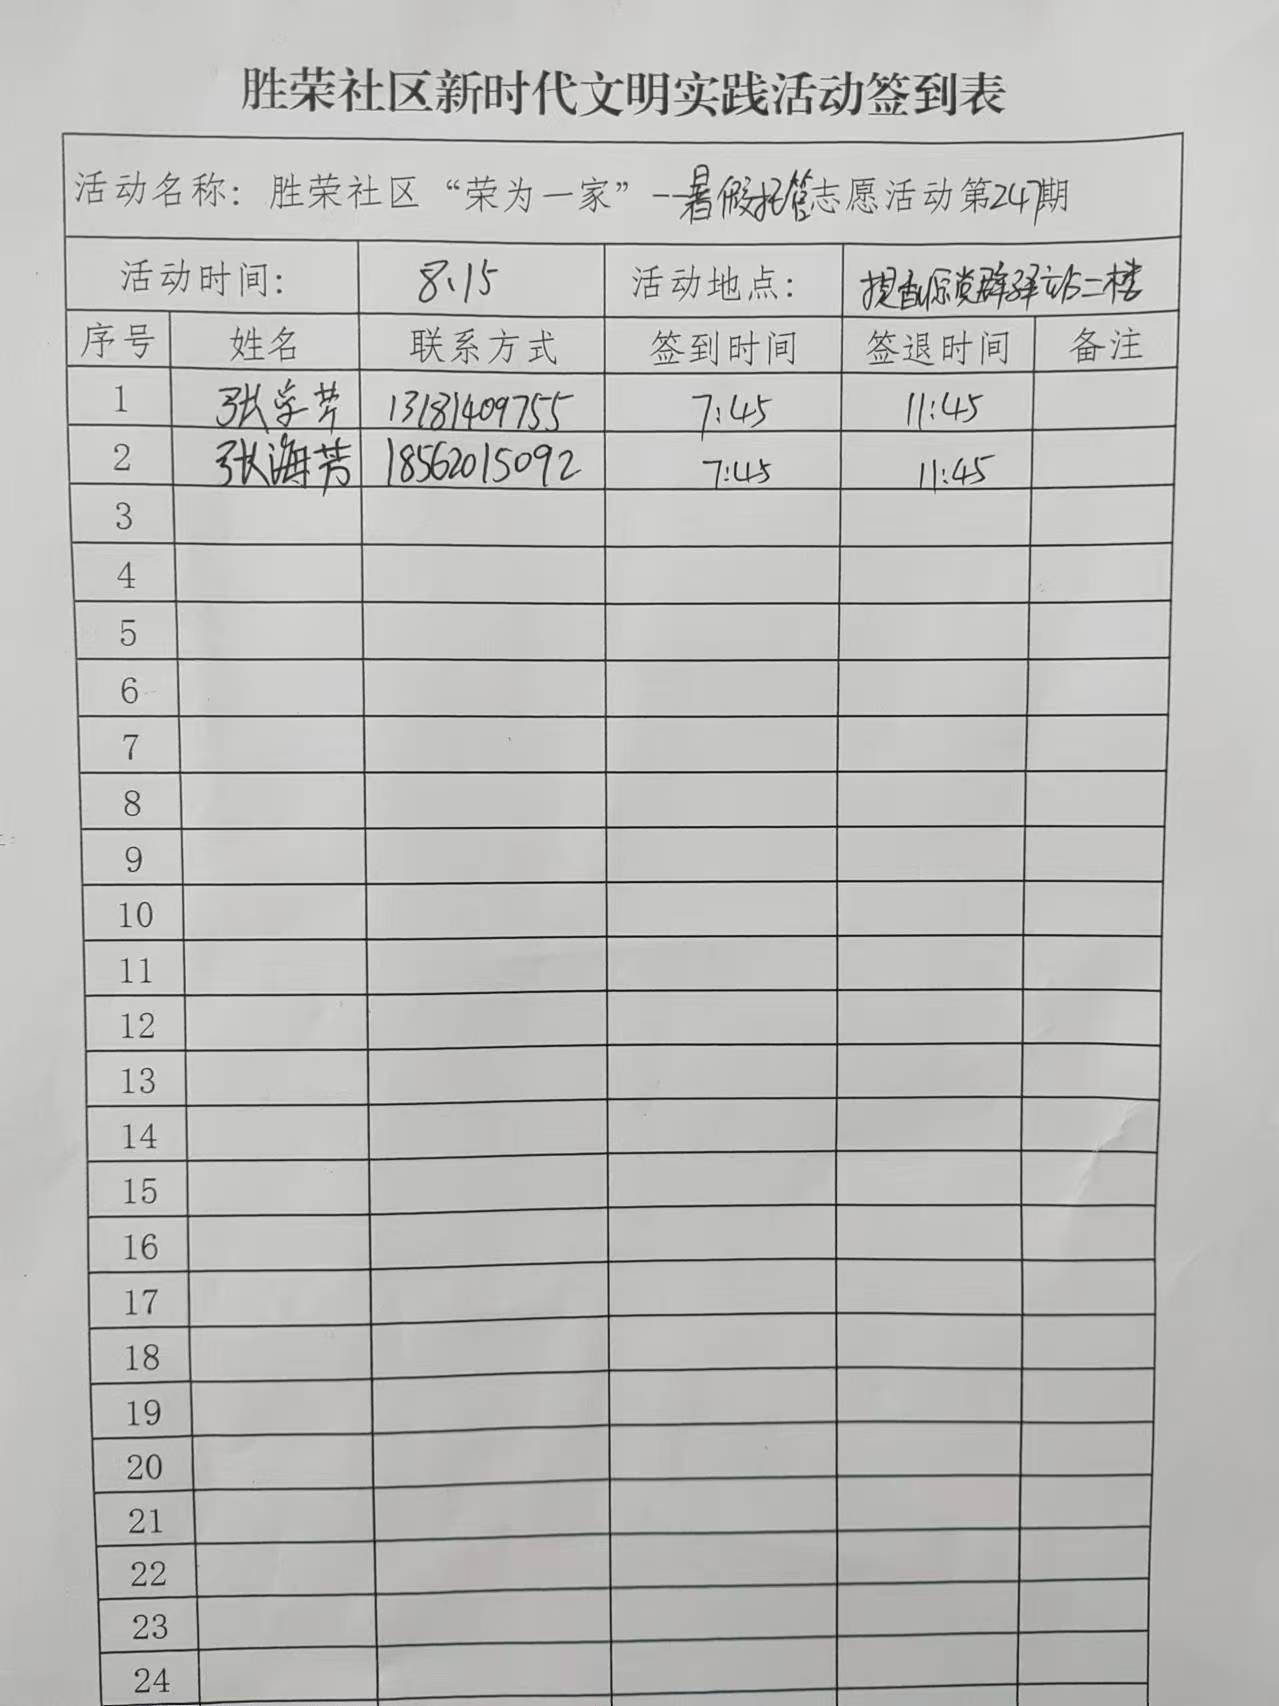 胜荣社区新时代文明实践活动签到表
活动名称：胜荣社区“荣为一家”--暑假托管志愿活动第247期
活动时间： 8、15 活动地点： 提香源党群驿站二楼
序号 姓名 联系方式 签到时间 签退时间 备注
1 张学芹 13181409755 7:45 11:45
2 张海芳 18562015092 7:45 11:45
3
4
5
6
7
8
9
10
11
12
13
14
15
16
17
18
19
20
21
22
23
24